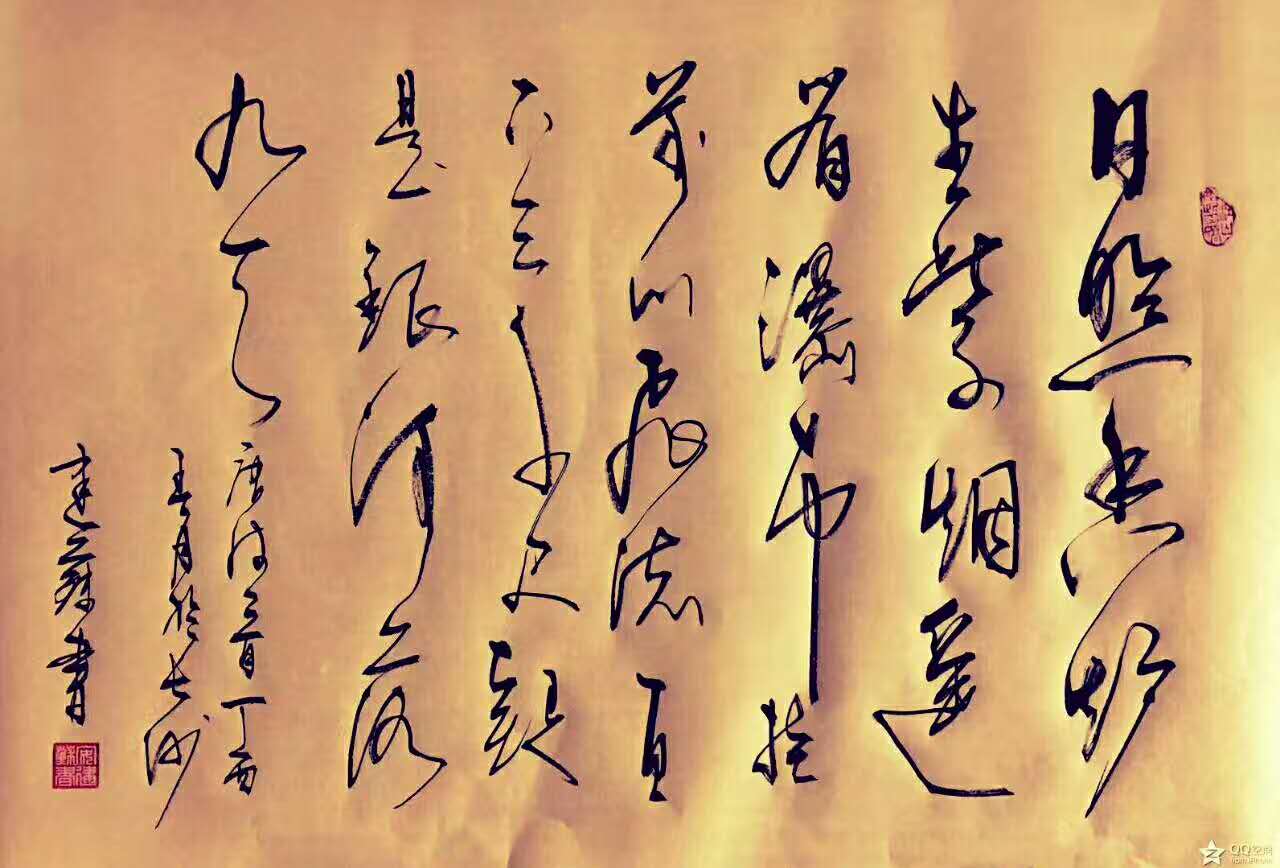 日照香炉
生紫烟遥
看瀑布挂
前川飛流直
下三千尺疑
是銀河落
九天
唐诗一首丁酉
月於长沙
建蘇書
QQ空间